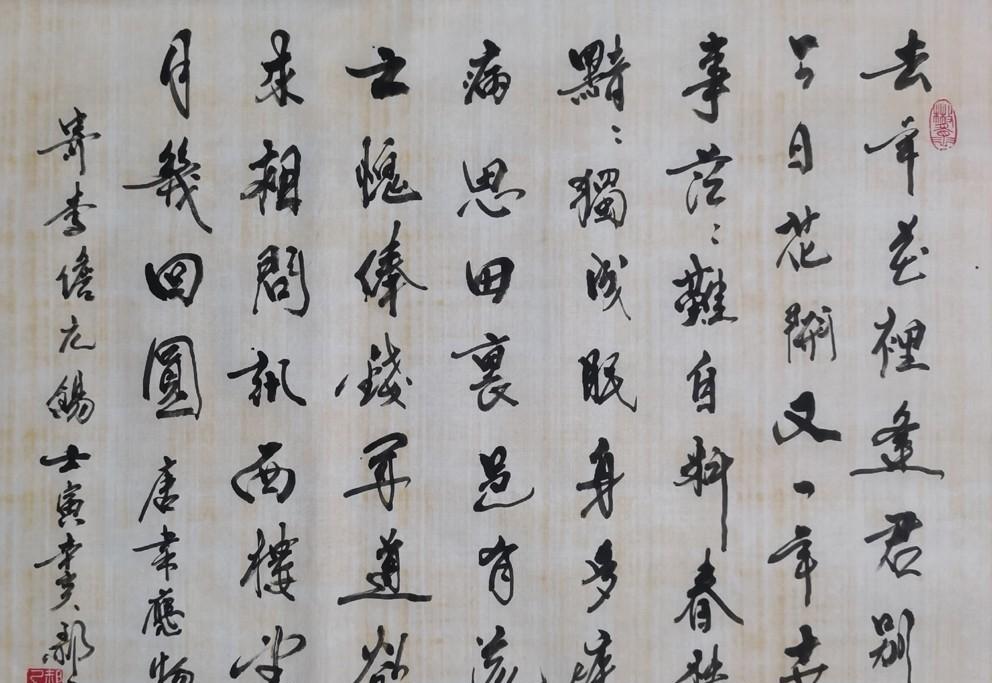 去年花裡逢君别
今日花開又一年世
事茫〻難自料春愁
黯〻獨成眠身多疾
病思田裏邑有流
亡愧俸錢聞道欲
來相問訊西樓望
月幾回圓 唐韋應物
寄李儋元錫 壬寅 郝